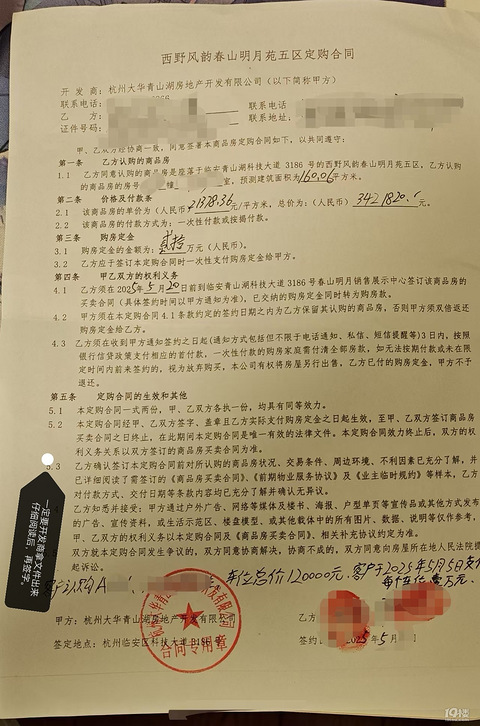 西野风韵春山明月苑五区定购合同
开 发 商：杭州大华青山湖房地产开发有限公司（以下简称甲方）
联系电话：
联系电话
乙 方：
联系地址：
证件号码：
甲、乙双方经协商一致，同意签署本商品房定购合同如下，以共同遵守：
第一条 乙方认购的商品房
1.1 乙方同意认购的商品房是座落于临安青山湖科技大道 3186 号的西野风韵春山明月苑五区，乙方认购
的商品房的房号 幢 室，预测建筑面积为160.96平方米。
第二条 价格及付款条
2.1 该商品房的单价为（人民币）21378.36元/平方米，总价为：（人民币）3421820.元。
2.2 该商品房的付款方式为：一次性付款或按揭付款。
第三条 购房定金
3.1 购房定金的金额为：贰拾万元（人民币）。
3.2 乙方应于签订本定购合同时一次性支付购房定金给甲方。
第四条 甲乙双方的权利义务
4.1 乙方须在2025年5月20日前到临安青山湖科技大道 3186 号春山明月销售展示中心签订该商品房的
买卖合同（具体签约时间以甲方通知为准），已交纳的购房定金同时转为购房款。
4.2 甲方须在本定购合同 4.1 条款约定的签约日期之内为乙方保留其认购的商品房，否则甲方须双倍返还
购房定金给乙方。
4.3 乙方须在收到甲方通知签约之日起（通知方式包括但不限于电话通知、私信、短信提醒等）3日内，按照
银行信贷政策支付相应的首付款，一次性付款的购房家庭需付清全部房款，如无法按期付款或未在限
定时间内前来签约的，视为放弃购买，本公司有权将房屋另行出售，乙方已付的购房定金，甲方不予
退还。
第五条 定购合同的生效和其他
5.1 本定购合同一式两份，甲、乙双方各执一份，均具有同等效力。
5.2 本定购合同经甲、乙双方签字、盖章且乙方实际支付购房定金之日起生效，至甲、乙双方签订商品房
买卖合同之日终止，在此期间本定购合同是唯一有效的法律文件。本定购合同效力终止后，双方的权
利义务关系以双方签订的商品房买卖合同为准。
5.3 乙方确认签订本定购合同前对所认购的商品房状况、交易条件、周边环境、不利因素已充分了解，并
已详细阅读了需签订的《商品房买卖合同》、《前期物业服务协议》及《业主临时规约》等样本，乙方
对付款方式、交付日期等条款内容均已充分了解并确认无异议。
乙方知悉并接受：甲方通过户外广告、网络等媒体及楼书、海报、户型单页等宣传品或其他方式发布
的广告、宣传资料，或生活示范区、楼盘模型、或其他载体中的所有图片、数据、说明等仅作参考，
甲、乙双方的权利义务以本定购合同及《商品房买卖合同》、相关补充协议约定为准。
双方就本定购合同发生争议的，双方同意协商解决，协商不成的，双方同意向房屋所在地人民法院提
起诉讼。
客户认购A 车位总价120000元，客户于2025年5月5日支付
每个车位壹万元
甲方：杭州大华青山湖房地产开发有限公司
乙方
签定地点：杭州临安区科技大道3186号
签约 2025年5月
合同专用章
一定要开发商拿文件出来
仔细阅读后，再签字。
19楼